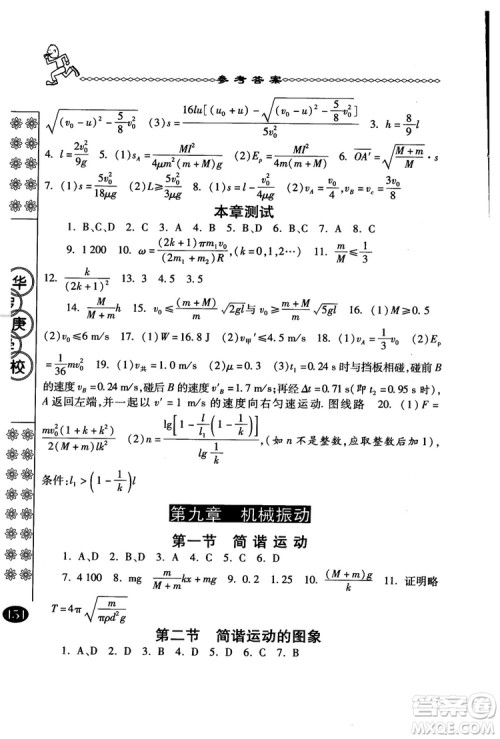 参考答案
$\sqrt{(v_0-u)^2-\frac{5}{8}v_0^2}$ (3)$s=\frac{16lu[(u_0+u)-\sqrt{(v_0-u)^2-\frac{5}{8}v_0^2}]}{5v_0^2}$ 3. $h=\frac{9}{8}l$
4. $l=\frac{2v_0^2}{9g}$ 5. (1)$s_A=\frac{MI^2}{4\mu m^2(m+M)g}$ (2)$E_p=\frac{MI^2}{4m(m+M)}$ 6. $\overline{OA'}=\sqrt{\frac{M+m}{M}}\cdot s$
7. (1)$s=\frac{5v_0^2}{18\mu g}$ (2)$L\geqslant\frac{5v_0^2}{2\mu g}$ 8. (1)$v_A=\frac{v_0}{4},v_B=v_C=\frac{3}{8}v_0$
本章测试
1. B、C、D 2. A、C 3. B 4. D 5. B、C、D 6. B、D 7. B 8. D
9. 1 200 10. $\omega=\frac{(2k+1)\pi m_1v_0}{(2m_1+m_2)R}(k=0,1,2,\cdots)$ 11. $\frac{m}{M}\leqslant\frac{1}{3}$
12. $\frac{k}{(2k+1)^2}$ 13. 3 4.5
14. $\frac{M}{M+m}d$ 15. $\frac{(m+M)}{m}\sqrt{2gl}\leqslant v_0\leqslant\frac{(m+M)}{m}\sqrt{5gl}$ 16. (1)$M\geqslant m$
(2)$v_0\leqslant6$ m/s 17. (1)W=8J (2)$v_0=4$ m/s 18. (1)$v_0=\frac{1}{6}v_0$ (2)$E_p=$
$\frac{1}{36}mv_0^2$ 19. (1)$v_共=2$ m/s (2)$\mu=0.48$ (3)$t_1=0.24$ s时与挡板相碰,碰前
B的速度$v_B=2$ m/s,碰后B的速度为零;再经$\Delta t=0.24$ s(即$t_2=0.95$ s时)
A返回左端,并一起以共同的速度向右匀速运动.图线路 20. (1)F=
$\frac{mv_0^2(m+M)}{2(M+m)kl}$ (2)$n=\frac{\lg\frac{l}{l_1}(1-\frac{1}{k})}{\lg k}+1$(如n不是整数,应取整数后加1)
条件:$l_1>(1-\frac{1}{k})l$
第九章 机械振动
第一节 简谐运动
1. A、D 2. A 3. C 4. D 5. C 6. A、D
7. 4 100 8. $\frac{m}{M+m}kx+mg$ 9. 0.2 1.25 10. $\frac{(M+m)g}{k}$ 11. 证明略
$T=4\pi\sqrt{\frac{m}{\pi\rho d^2g}}$
第二节 简谐运动的图象
1. A、D 2. B 3. A、D 4. B、C 5. D 6. C 7. B
华
庚
校
151